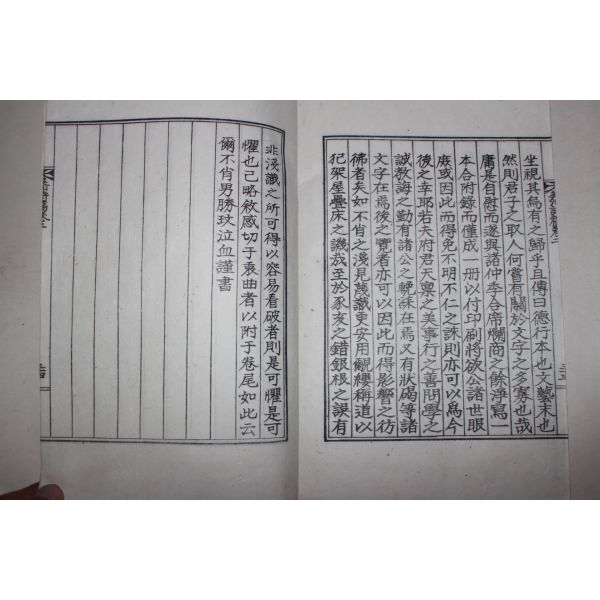 坐視其爲有之歸乎且傳曰德行本也文藝末也
然則君子之取人何嘗有關於文字之多寡也哉
庸是自慰而遂與諸仲李合帝爛商之餘淨寫一
本合附錄而僅成一册以付印刷將欲公諸世眼
庶或因此而得免不明不仁之誅則亦可以爲今
後之幸耶若夫府君天稟之美事行之善問學之
誠教誨之勤有諸公之輓誄在焉又有狀碣等諸
文字在焉後之覽者亦可以因此而得影響之彷
彿者矣如不肖之淺見蔑識更安用覼縷稱道以
犯架屋疊床之譏哉至於豕亥之錯銀根之誤有
非淺識之所可得以容易看破者則是可懼是可
懼也已略敘感切于衷曲者以附于卷尾如此云
爾不肖男勝玟泣血謹書